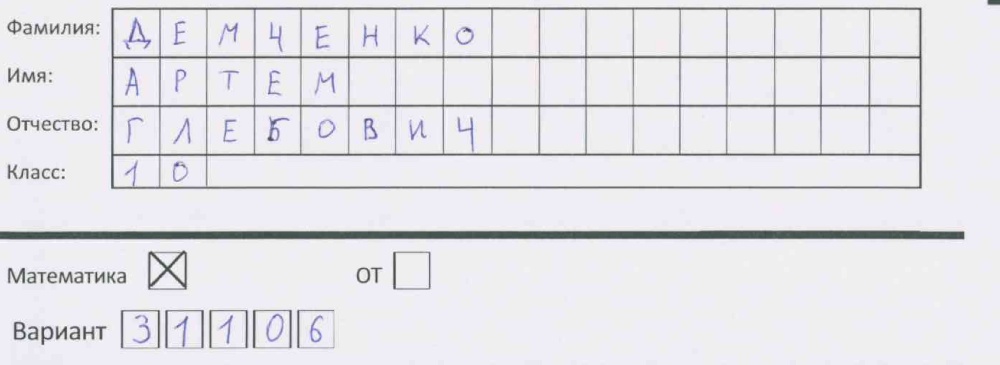 Фамилия: ДЕМЧЕНКО
Имя: АРТЕМ
Отчество: ГЛЕБОВИЧ
Класс: 10
Математика ОТ
Вариант 31106